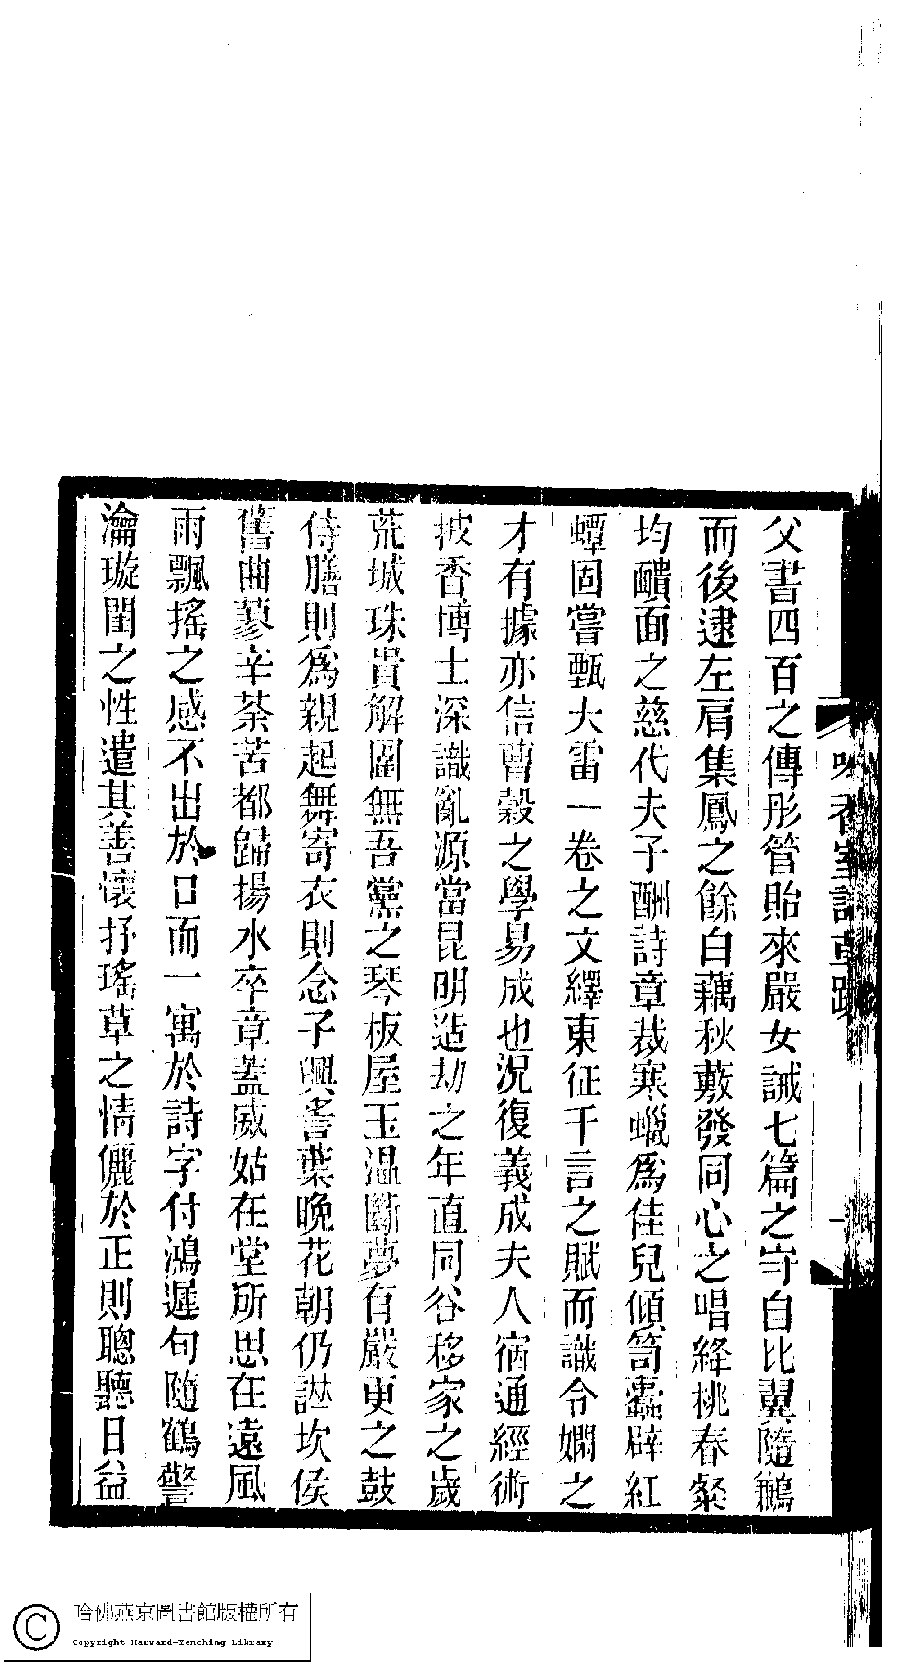 父書四百之傳彤管貽來嚴女誡七篇之守自比翼隨鶼
而後逮左肩集鳳之餘白藕秋蔌發同心之唱絳桃春粲
均靧面之慈代夫子酬詩章裁寒蠟爲佳兒傾笥蠹辟紅
蟫固嘗甄大雷一卷之文繹東征千言之賦而識令嫻之
才有據亦信曹穀之學易成也況復義成夫人宿通經術
披香博士深識亂源當昆明造劫之年直同谷移家之歲
荒城珠貴解圍無吾黨之琴板屋玉溫斷夢有嚴更之鼓
侍膳則爲親起舞寄衣則念子興謠葉晚花朝仍諩坎侯
舊曲蓼辛荼苦都歸揚水卒章蓋威姑在堂所思在遠風
雨飄搖之感不出於口而一寓於詩字付鴻遲句隨鶴警
瀹璇閨之性遣其善懷抒瑤草之情儷於正則聰聽日益
室詩草
一
哈佛燕京圖書館版權所有
Copyright Harvard-Yenching Library